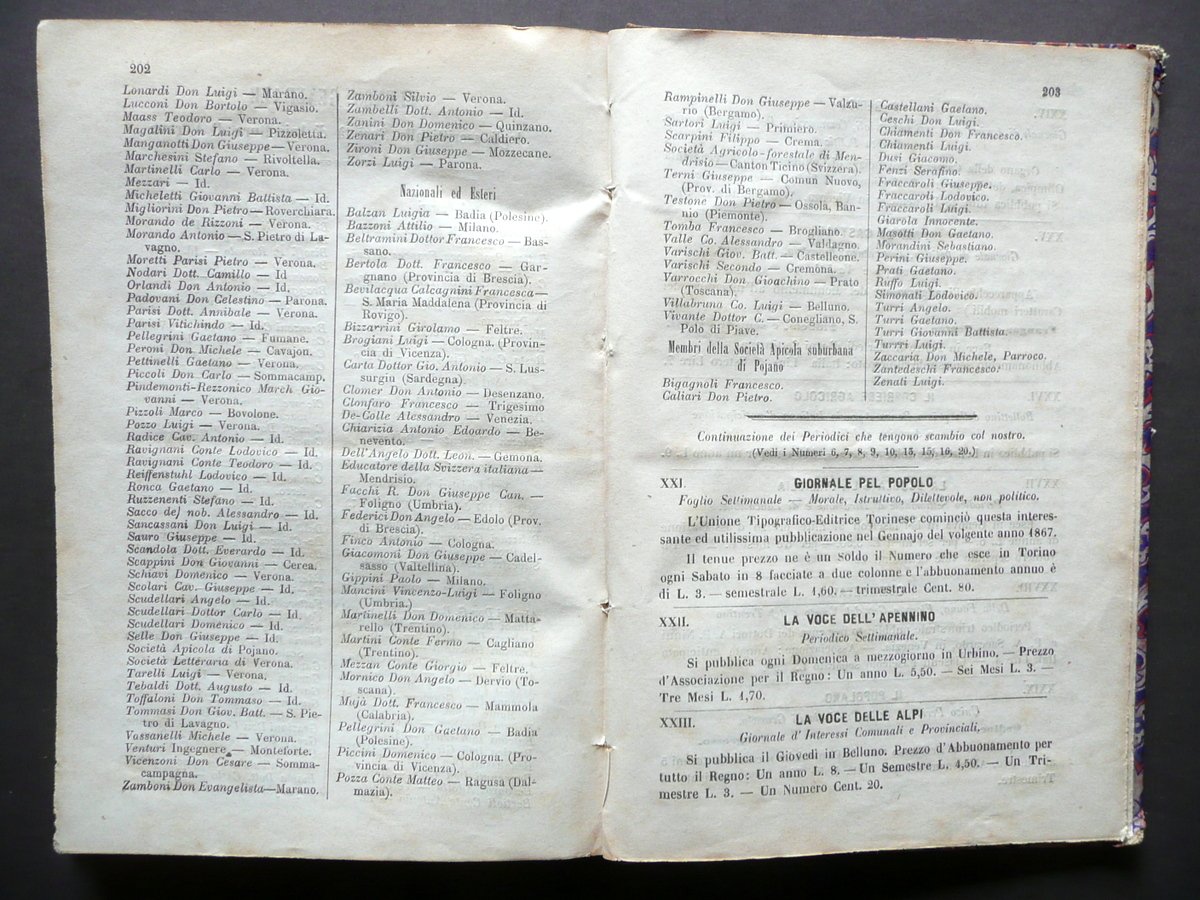 202
Lonardi Don Luigi — Marano.
Lucconi Don Bortolo — Vigasio.
Maass Teodoro — Verona.
Magalini Don Luigi — Pizzoletta.
Manganotti Don Giuseppe — Verona.
Marchesini Stefano — Rivoltella.
Martinelli Carlo — Verona.
Mezzari — Id.
Micheletti Giovanni Battista — Id.
Migliorini Don Pietro — Roverchiara.
Morando de Rizzoni — Verona.
Morando Antonio — S. Pietro di La-
vagno.
Moretti Parisi Pietro — Verona.
Nodari Dott. Camillo — Id
Orlandi Don Antonio — Id.
Padovani Don Celestino — Parona.
Parisi Dott. Annibale — Verona.
Parisi Vitichindo — Id.
Pellegrini Gaetano — Fumane.
Peroni Don Michele — Cavajon.
Pettinelli Gaetano — Verona.
Piccoli Don Carlo — Sommacamp.
Pindemonti-Rezzonico March Gio-
vanni — Verona.
Pizzoli Marco — Bovolone.
Pozzo Luigi — Verona.
Radice Cav. Antonio — Id.
Ravignani Conte Lodovico — Id.
Ravignani Conte Teodoro — Id.
Reiffenstuhl Lodovico — Id.
Ronca Gaetano — Id.
Ruzzenenti Stefano — Id.
Sacco de) nob. Alessandro — Id.
Sancassani Don Luigi — Id.
Sauro Giuseppe — Id.
Scandola Dott. Everardo — Id.
Scappini Don Giovanni — Cerea.
Schiavi Domenico — Verona.
Scolari Cav. Giuseppe — Id.
Scudellari Angelo — Id.
Scudellari Dottor Carlo — Id.
Scudellari Domenico — Id.
Selle Don Giuseppe — Id.
Società Apicola di Pojano.
Società Letteraria di Verona.
Tarelli Luigi — Verona.
Tebaldi Dott. Augusto — Id.
Toffaloni Don Tommaso — Id.
Tommasi Don Giov. Batt. — S. Pie-
tro di Lavagno.
Vassanelli Michele — Verona.
Venturi Ingegnere — Monteforte.
Vicenzoni Don Cesare — Somma-
campagna.
Zamboni Don Evangelista — Marano.
Zamboni Silvio — Verona.
Zambelli Dott. Antonio — Id.
Zanini Don Domenico — Quinzano.
Zenari Don Pietro — Caldiero.
Zironi Don Giuseppe — Mozzecane.
Zorzi Luigi — Parona.
Nazionali ed Esteri
Balzan Luigia — Badia (Polesine).
Bazzoni Attilio — Milano.
Beltramini Dottor Francesco — Bas-
sano.
Bertola Dott. Francesco — Gar-
gnano (Provincia di Brescia).
Bevilacqua Calcagnini Francesca —
S. Maria Maddalena (Provincia di
Rovigo).
Bizzarrini Girolamo — Feltre.
Brogiani Luigi — Cologna. (Provin-
cia di Vicenza).
Carta Dottor Gio. Antonio — S. Lus-
surgiu (Sardegna).
Clomer Don Antonio — Desenzano.
Clonfaro Francesco — Trigesimo
De-Colle Alessandro — Venezia.
Chiarizia Antonio Edoardo — Be-
nevento.
Dell'Angelo Dott. Leon. — Gemona.
Educatore della Svizzera italiana —
Mendrisio.
Facchi R. Don Giuseppe Can. —
Foligno (Umbria).
Federici Don Angelo — Edolo (Prov.
di Brescia).
Finco Antonio — Cologna.
Giacomoni Don Giuseppe — Cadel-
sasso (Valtellina).
Gippini Paolo — Milano.
Mancini Vincenzo-Luigi — Foligno
(Umbria.)
Martinelli Don Domenico — Matta-
rello (Trentino).
Martini Conte Fermo — Cagliano
(Trentino).
Mezzan Conte Giorgio — Feltre.
Mornico Don Angelo — Dervio (To-
scana).
Mujà Dott. Francesco — Mammola
(Calabria).
Pellegrini Don Gaetano — Badia
(Polesine).
Piccini Domenico — Cologna. (Pro-
vincia di Vicenza).
Pozza Conte Matteo — Ragusa (Dal-
mazia).
203
Rampinelli Don Giuseppe — Valzu-
rio (Bergamo).
Sartori Luigi — Primiero.
Scarpini Filippo — Crema.
Società Agricolo-forestale di Men-
drisio — Canton Ticino (Svizzera).
Terni Giuseppe — Comun Nuovo,
(Prov. di Bergamo).
Testone Don Pietro — Ossola, Ban-
nio (Piemonte).
Tomba Francesco — Brogliano.
Valle Co. Alessandro — Valdagno.
Varischi Giov. Batt. — Castelleone.
Varischi Secondo — Cremona.
Varrocchi Don Gioachino — Prato
(Toscana).
Villabruna Co. Luigi — Belluno.
Vivante Dottor C. — Conegliano, S.
Polo di Piave.
Membri della Società Apicola suburbana
di Pojano
Bigagnoli Francesco.
Caliari Don Pietro.
Castellani Gaetano.
Ceschi Don Luigi.
Chiamenti Don Francesco.
Chiamenti Luigi.
Dusi Giacomo.
Fenzi Serafino.
Fraccaroli Giuseppe.
Fraccaroli Lodovico.
Fraccaroli Luigi.
Giarola Innocente.
Masotti Don Gaetano.
Morandini Sebastiano.
Perini Giuseppe.
Prati Gaetano.
Ruffo Luigi.
Simonati Lodovico.
Turri Angelo.
Turri Gaetano.
Turri Giovanni Battista.
Turrri Luigi.
Zaccaria Don Michele, Parroco.
Zantedeschi Francesco.
Zenati Luigi.
Continuazione dei Periodici che tengono scambio col nostro.
(Vedi i Numeri 6, 7, 8, 9, 10, 13, 15, 16, 20.)
XXI. GIORNALE PEL POPOLO
Foglio Settimanale — Morale, Istruttivo, Dilettevole, non politico.
L'Unione Tipografico-Editrice Torinese cominciò questa interes-
sante ed utilissima pubblicazione nel Gennajo del volgente anno 1867.
Il tenue prezzo ne è un Soldo il Numero che esce in Torino
ogni Sabato in 8 facciate a due colonne e l'abbuonamento annuo è
di L. 3. — semestrale L. 1,60. — trimestrale Cent. 80.
XXII. LA VOCE DELL' APENNINO
Periodico Settimanale.
Si pubblica ogni Domenica a mezzogiorno in Urbino. — Prezzo
d'Associazione per il Regno: Un anno L. 5,50. — Sei Mesi L. 3. —
Tre Mesi L. 1,70.
XXIII. LA VOCE DELLE ALPI
Giornale d' Interessi Comunali e Provinciali.
Si pubblica il Giovedì in Belluno. Prezzo d'Abbuonamento per
tutto il Regno: Un anno L. 8. — Un Semestre L. 4,50. — Un Tri-
mestre L. 3. — Un Numero Cent. 20.